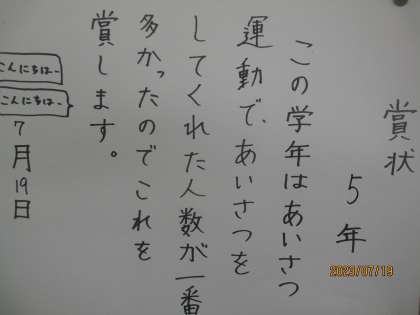 賞状
5年
この学年はあいさつ
運動で、あいさつを
してくれた人数が一番
多かったのでこれを
賞します。
7月19日
こんにちは〜
こんにちは〜
2023/07/19